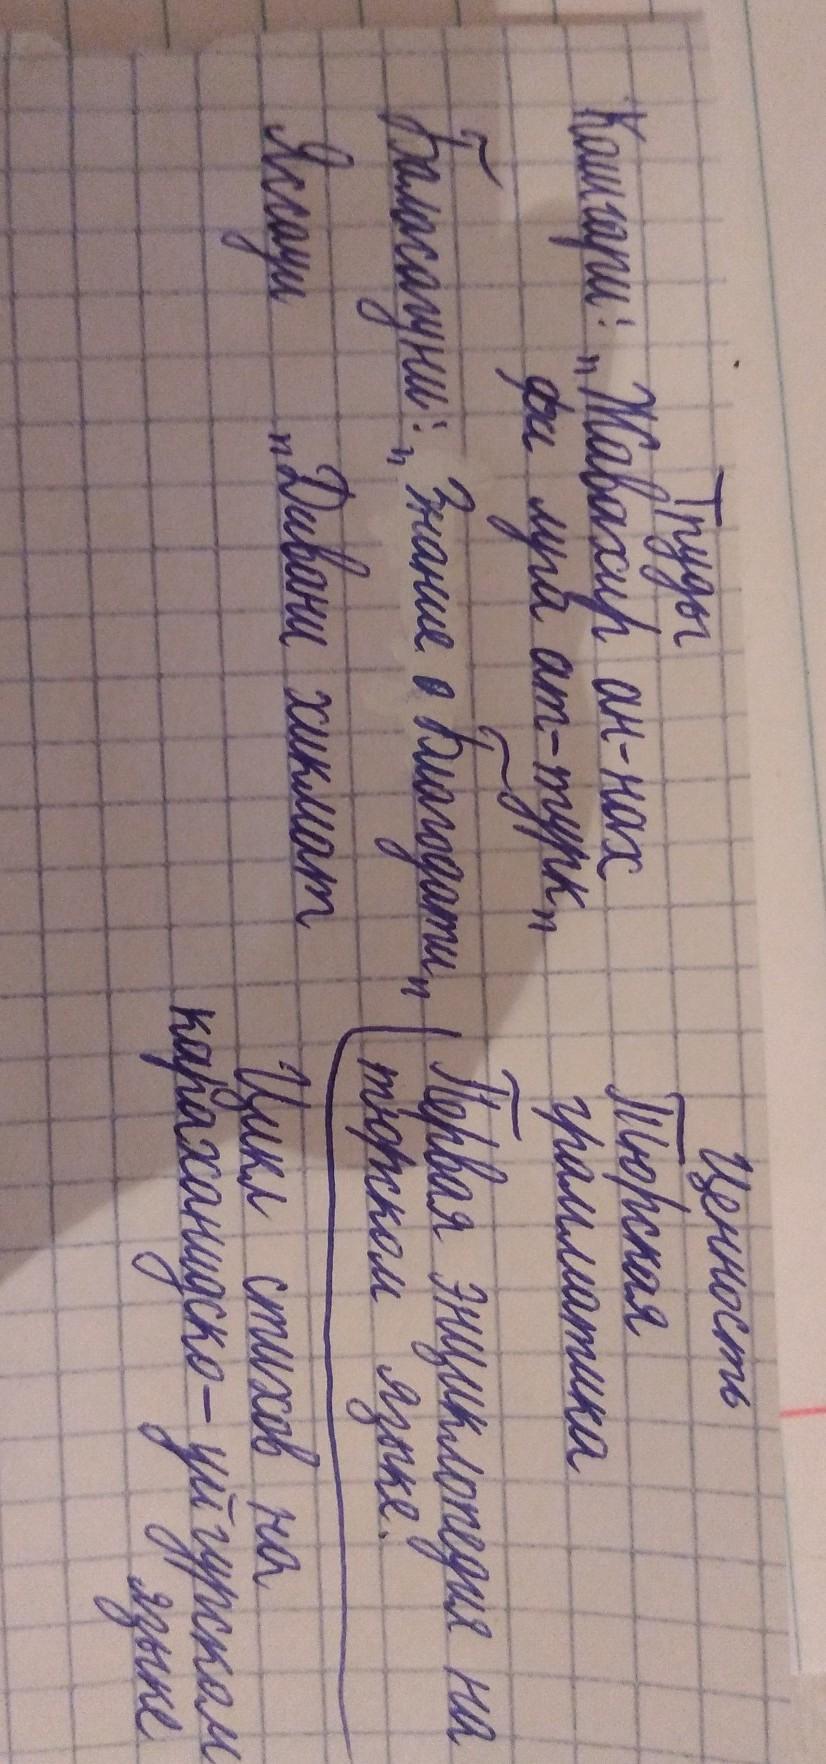 Труды Ценность
Кашгари: „Жавахир ан-нах Тюрская
фи луга ат-турк" грамматика
Баласагуни: „Знание о Благодати" Первая Энциклопедия на
тюрском языке.
Яссауи „Дивани хикмат Цикл стихов на
караханидско-уйгурском
языке